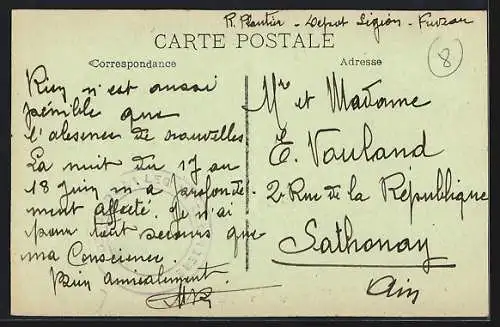 R. Plantin - Depot Légion - Fuveau
CARTE POSTALE
8
Correspondance
Adresse
Rien n'est aussi
pénible que
l'absence de nouvelles
La nuit du 17 au
18 Juin m'a profondé-
ment affecté. Je n'ai
pour tout secours que
ma Conscience.
Bien amicalement.
Mr et Madame
E. Vauland
2 Rue de la République
Sathonay
Ain